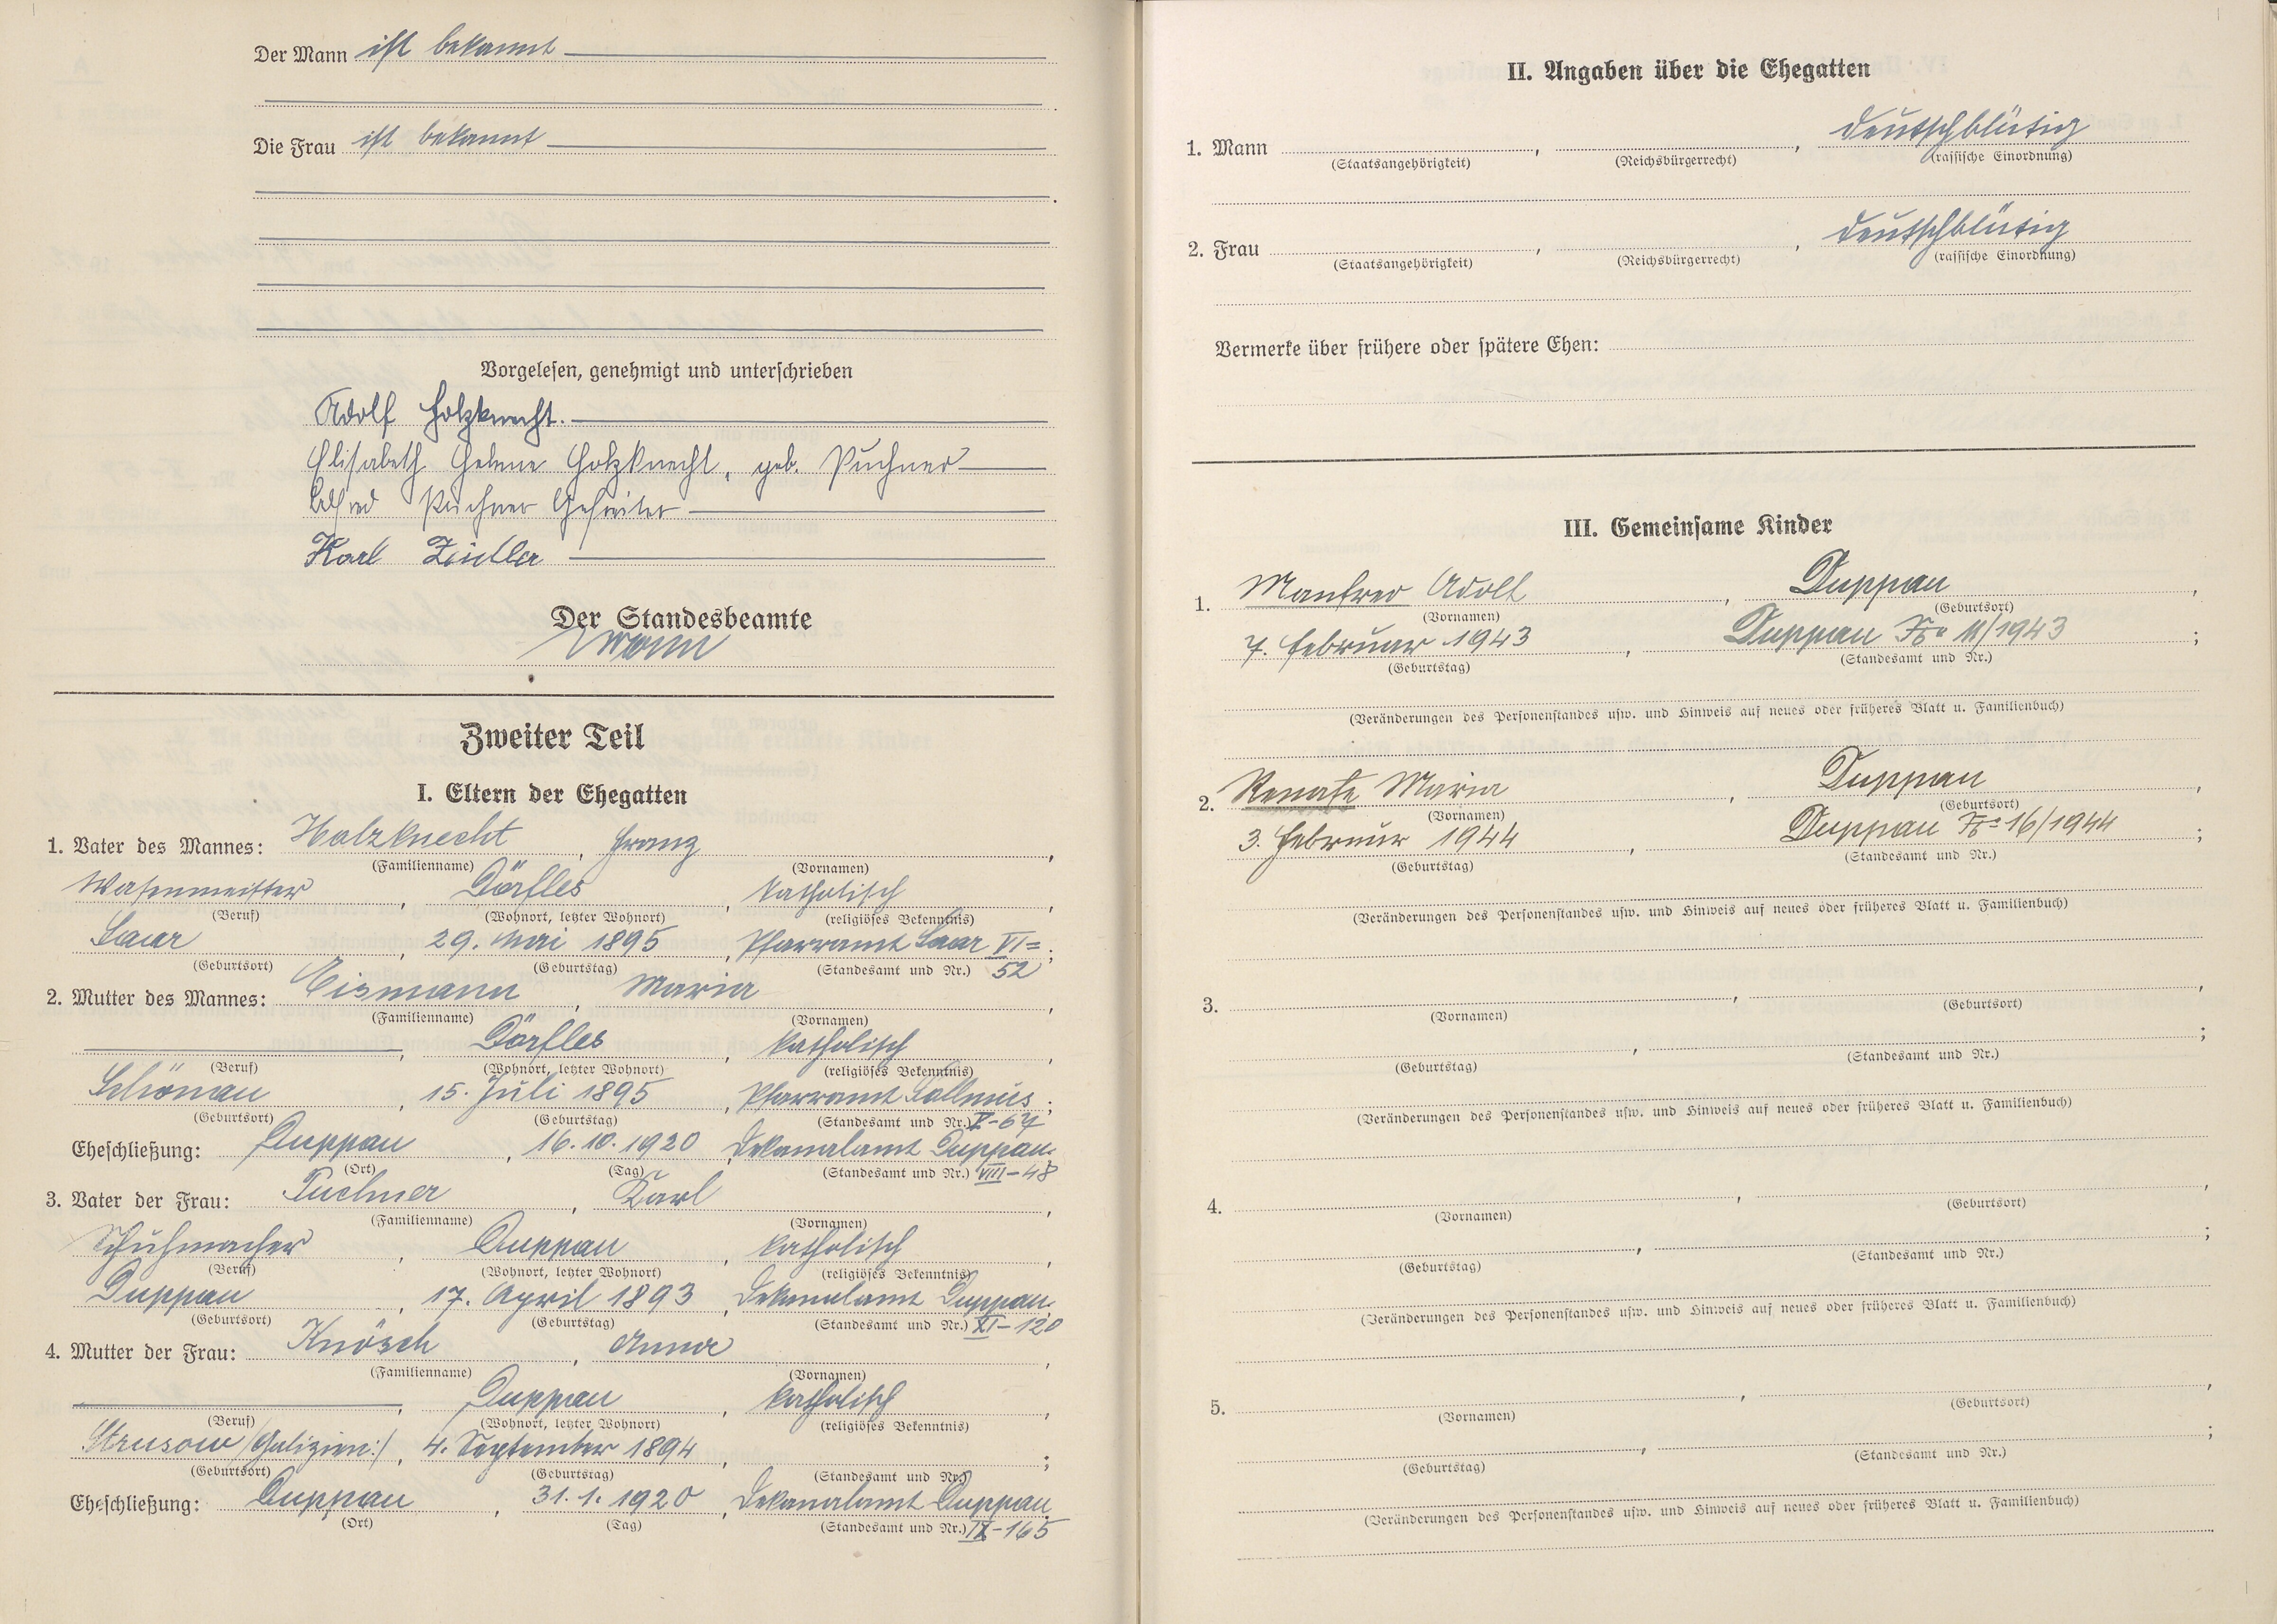 Der Mann ist bekannt
Die Frau ist bekannt
Vorgelesen, genehmigt und unterschrieben
Adolf Holzknecht.
Elisabeth Helene Holzknecht, geb. Puchner
Alfred Puchner Gefreiter
Karl
Der Standesbeamte
Zweiter Teil
I. Eltern der Ehegatten
1. Vater des Mannes: Holzknecht, Franz,
(Familienname) (Vornamen)
Wasenmeister, Dörfles, katholisch,
(Beruf) (Wohnort, letzter Wohnort) (religiöses Bekenntnis)
Saar, 29. Mai 1895, Pfarramt Saar VI=;
(Geburtsort) (Geburtstag) (Standesamt und Nr.) 52
2. Mutter des Mannes: Eismann, Maria,
(Familienname) (Vornamen)
, Dörfles, katholisch,
(Beruf) (Wohnort, letzter Wohnort) (religiöses Bekenntnis)
Schönau, 15. Juli 1895, Pfarramt Sollmus;
(Geburtsort) (Geburtstag) (Standesamt und Nr.) V-67
Eheschließung: Duppau, 16.10.1920, Dekanalamt Duppau.
(Ort) (Tag) (Standesamt und Nr.) VIII-48
3. Vater der Frau: Puchner, Karl,
(Familienname) (Vornamen)
Schuhmacher, Duppau, katholisch,
(Beruf) (Wohnort, letzter Wohnort) (religiöses Bekenntnis)
Duppau, 17. April 1893, Dekanalamt Duppau;
(Geburtsort) (Geburtstag) (Standesamt und Nr.) XI-120
4. Mutter der Frau: Knösch, Anna,
(Familienname) (Vornamen)
, Duppau, katholisch,
(Beruf) (Wohnort, letzter Wohnort) (religiöses Bekenntnis)
Strusow /Galizien:/, 4. September 1894, ;
(Geburtsort) (Geburtstag) (Standesamt und Nr.)
Eheschließung: Duppau, 31.1.1920, Dekanalamt Duppau.
(Ort) (Tag) (Standesamt und Nr.) IX-165
II. Angaben über die Ehegatten
1. Mann , , deutschblütig
(Staatsangehörigkeit) (Reichsbürgerrecht) (rassische Einordnung)
2. Frau , , deutschblütig
(Staatsangehörigkeit) (Reichsbürgerrecht) (rassische Einordnung)
Vermerke über frühere oder spätere Ehen:
III. Gemeinsame Kinder
1. Manfred Adolf, Duppau,
(Vornamen) (Geburtsort)
7. Februar 1943, Duppau No 11/1943;
(Geburtstag) (Standesamt und Nr.)
(Veränderungen des Personenstandes usw. und Hinweis auf neues oder früheres Blatt u. Familienbuch)
2. Renate Maria, Duppau,
(Vornamen) (Geburtsort)
3. Februar 1944, Duppau No 16/1944;
(Geburtstag) (Standesamt und Nr.)
(Veränderungen des Personenstandes usw. und Hinweis auf neues oder früheres Blatt u. Familienbuch)
3. , ,
(Vornamen) (Geburtsort)
, ;
(Geburtstag) (Standesamt und Nr.)
(Veränderungen des Personenstandes usw. und Hinweis auf neues oder früheres Blatt u. Familienbuch)
4. , ,
(Vornamen) (Geburtsort)
, ;
(Geburtstag) (Standesamt und Nr.)
(Veränderungen des Personenstandes usw. und Hinweis auf neues oder früheres Blatt u. Familienbuch)
5. , ,
(Vornamen) (Geburtsort)
, ;
(Geburtstag) (Standesamt und Nr.)
(Veränderungen des Personenstandes usw. und Hinweis auf neues oder früheres Blatt u. Familienbuch)